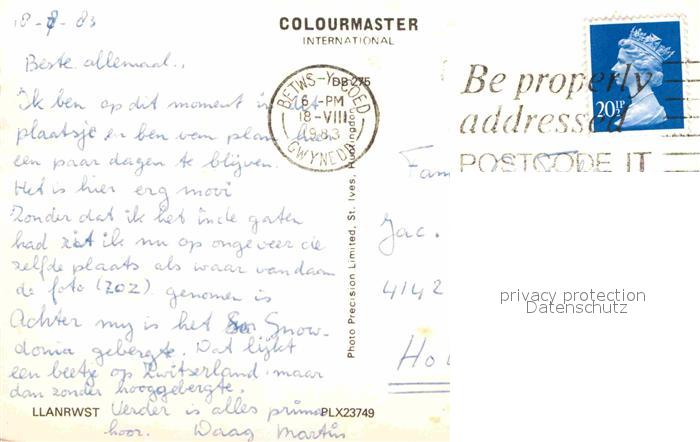 18-8-83
COLOURMASTER
INTERNATIONAL
Beste allemaal.,
Ik ben op dit moment in dit
plaatsje en ben van plan hier
een paar dagen te blijven.
Het is hier erg mooi
Zonder dat ik het in de gaten
had zit ik nu op ongeveer de
zelfde plaats als waar vandaan
de foto (ZOZ) genomen is
Achter my is het Snow-
donia gebergte. Dat lijkt
een beetje op Zwitserland maar
dan zonder hooggebergte.
LLANRWST Verder is alles prima PLX23749
hoor. Daag Martin
DB 275
BETWS-Y-COED
6 -PM
18-VIII
1983
GWYNEDD
Photo Precision Limited, St. Ives, Huntingdon
Be properly
addressed
POSTCODE IT
20½P
Fam
Jac.
4142
privacy protection
Datenschutz